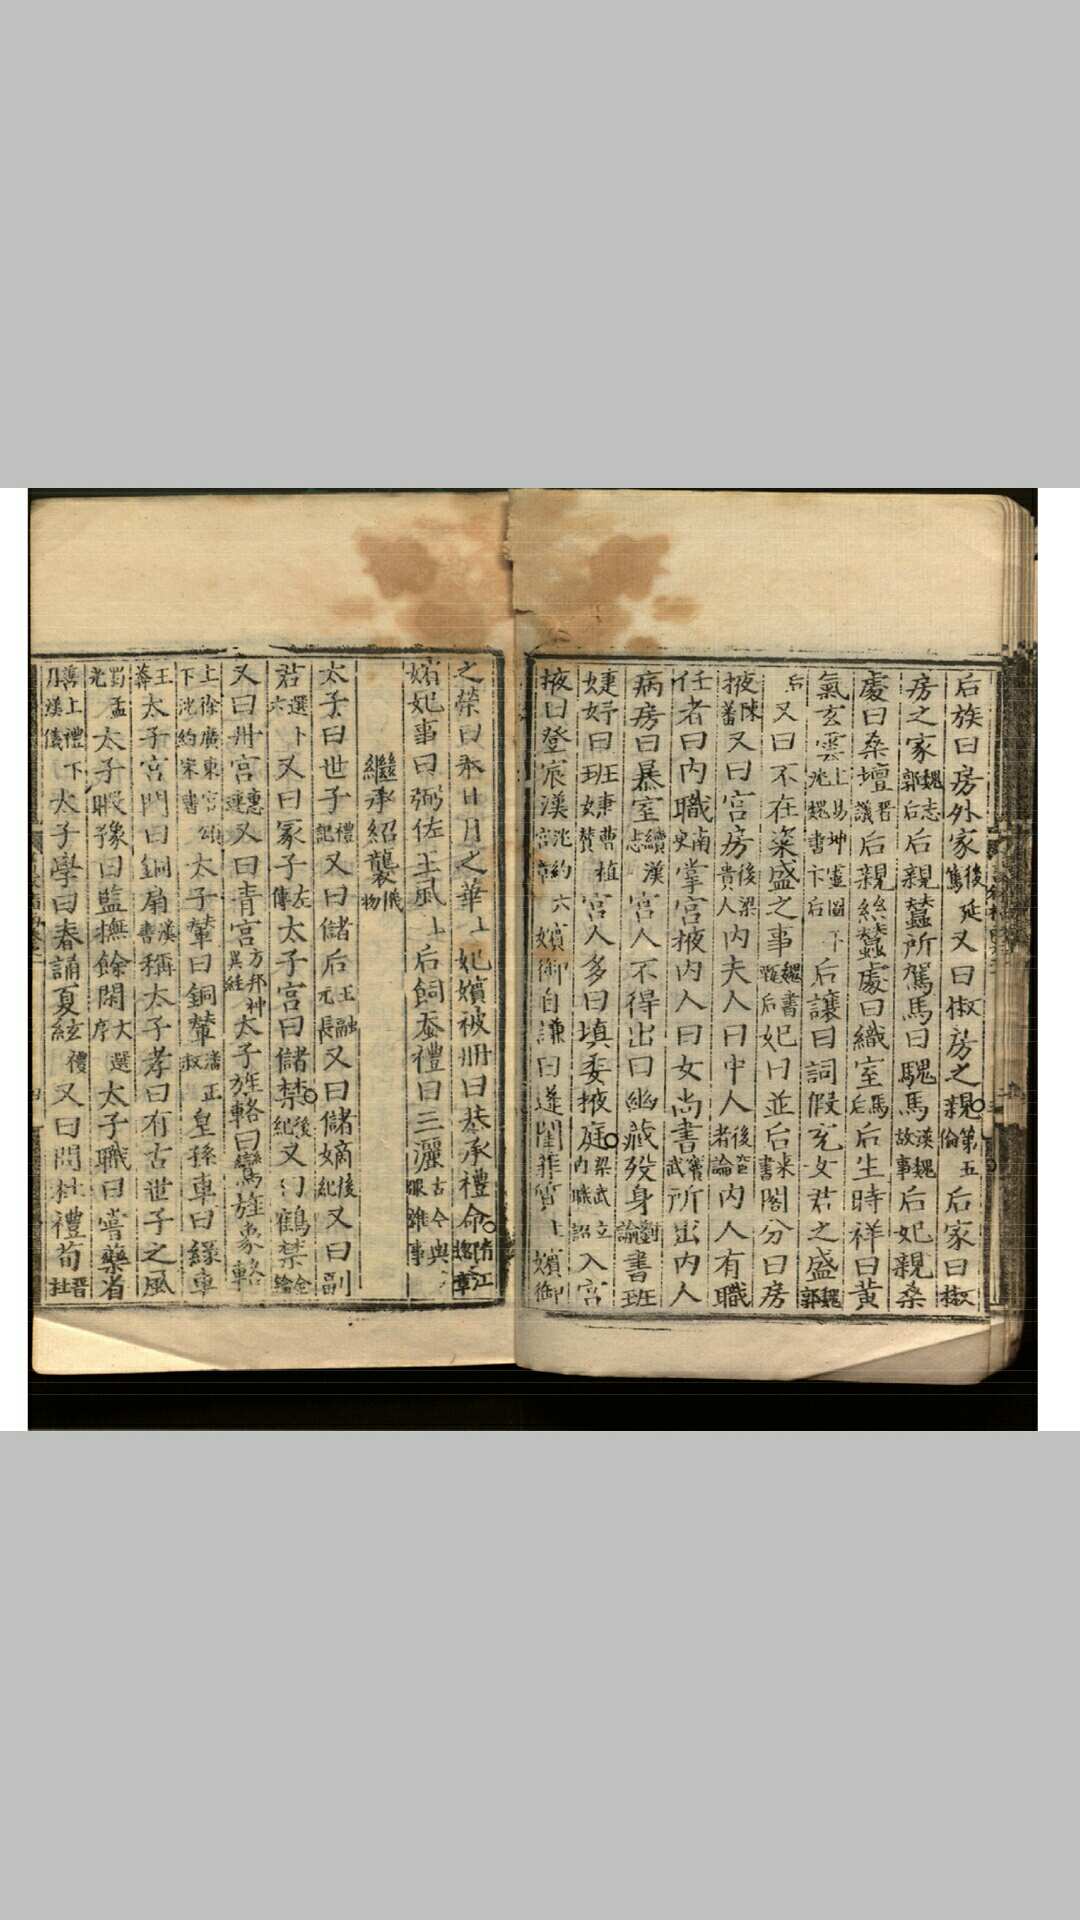 后族曰房外家後篤延又曰椒房之親第五倫后家曰椒
房之家魏志郭后后親蠶所駕馬曰騩馬漢魏故事后妃親桑
處曰桑壇晋議后親絲蠶處曰織室馬后后生時祥曰黃
氣玄雲上易坤靈圖下沈魏書卞后后讓曰詞假充女君之盛魏郭
后又曰不在粢盛之事魏書甄后妃曰並后宋書閣分曰房
掖陳蕃又曰宮房後梁貴人內夫人曰中人後官者論內人有職
任者曰內職南史掌宮掖內人曰女尚書竇武所出內人
病房曰暴室續漢志宮人不得出曰幽藏歿身劉論書班
婕妤曰班婕曹植婕贊宮人多曰填委掖庭梁武立內職詔入宮
掖曰登宸漢沈約宮章六嬪御自謙曰蓬閨菲質上嬪御
之榮曰承日月之華上妃嬪被冊曰恭承禮命隋江總章
嬪妃事曰弼佐王風上后飼蚕禮曰三灑古今輿服雜事
繼承紹襲儀物
太子曰世子禮記又曰儲后王融元長又曰儲嫡後紀又曰副
君選卞六又曰冢子左傳太子宮曰儲禁後紀又曰鶴禁金鑰
又曰丹宮惠連又曰青宮方邦神異經太子旌輅曰鸞旌象輅
上徐廣東宮頌下沈約宋書太子輦曰銅輦潘正叔皇孫車曰緑車
王莽太子宮門曰銅扇漢書稱太子孝曰有古世子之風
蜀孟光太子暇豫曰監撫餘閑大選序太子職曰嘗藥省
善上禮下月漢儀太子學曰春誦夏絃禮又曰問社禮荀晋